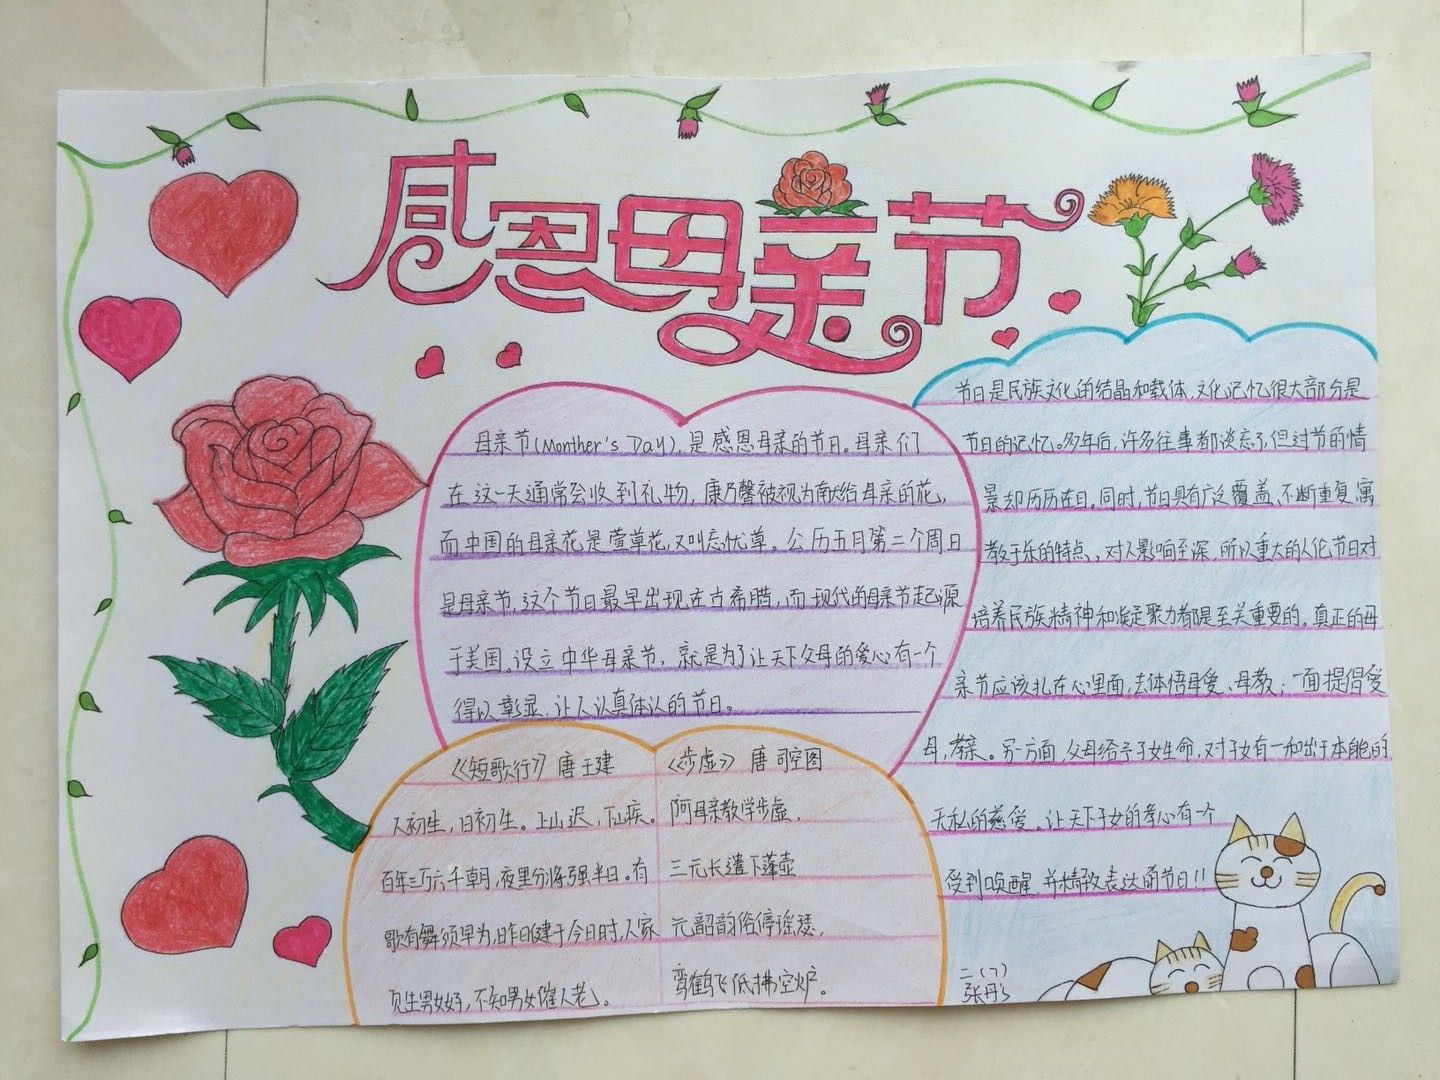 感恩母亲节
母亲节(Monther's Day),是感恩母亲的节日。母亲们
在这一天通常会收到礼物,康乃馨被视为献给母亲的花,
而中国的母亲花是萱草花,又叫忘忧草。公历五月第二个周日
是母亲节,这个节日最早出现在古希腊,而现代的母亲节起源
于美国,设立中华母亲节,就是为了让天下父母的爱心有一个
得以彰显,让人认真体认的节日。
节日是民族文化的结晶和载体,文化记忆很大部分是
节日的记忆。多年后,许多往事都淡忘了,但过节的情
景却历历在目。同时,节日具有广泛覆盖、不断重复,寓
教于乐的特点,对人影响至深,所以重大的人伦节日对
培养民族精神和凝聚力都是至关重要的。真正的母
亲节应该扎在心里面,去体悟母爱、母教;一面提倡爱
母,孝亲。另一方面,父母给予子女生命,对子女有一种出于本能的
无私的慈爱。让天下子女的孝心有一个
受到唤醒,并精致表达的节日!!
《短歌行》唐 王建
人初生,日初生。上山迟,下山疾。
百年三万六千朝,夜里分将强半日。有
歌有舞须早为,昨日健于今日时,人家
见生男女好,不知男女催人老。
《步虚》 唐 司空图
阿母亲教学步虚,
三元长遣下蓬壶
元韶韵俗停瑶瑟,
鸾鹤飞低拂空炉。
二(7)
张丹